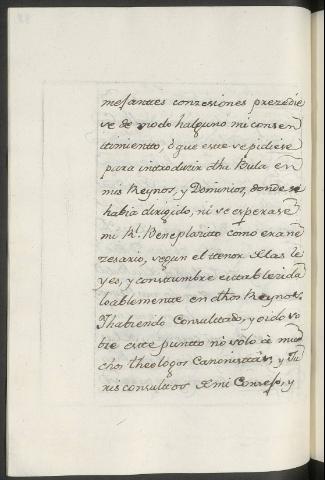 mejanttes conzesiones prezedie
se de modo halguno mi consen
ttimientto, ò que este se pidiese
para introduzir dha Bula en
mis Reynos, y Dominios, donde se
habia dirigido, ni se esperase
mi Rl. Beneplazitto como era ne
zesario, segun el ttenor de las le
yes, y consttumbre esttablezida
loablementte en dhos Reynos.
Y habiendo Consulttado, y oido so
bre estte puntto no solo à mu
chos theologos Canonisttas, y Ju
risconsulttos de mi Consejo, y